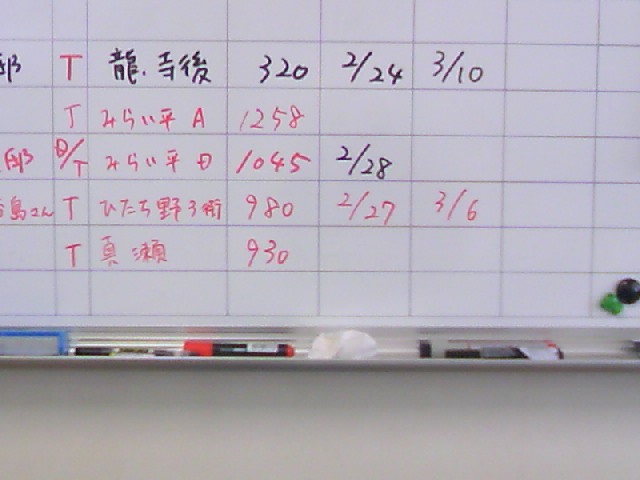 邸 T 龍.寺後 320 2/24 3/10
T みらい平 A 1258
邸 T みらい平 1045 2/28
島さん T ひたち野3街 980 2/27 3/6
T 真瀬 930